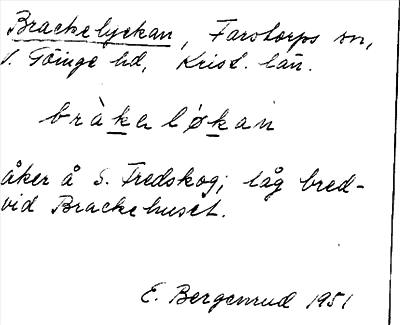 Brackelyckan, Farstorps sn,
V. Göinge hd, Krist. län.
bràkalǿkan
åker å S. Fredskog; låg bred-
vid Brackehuset.
E. Bergenrud 1951